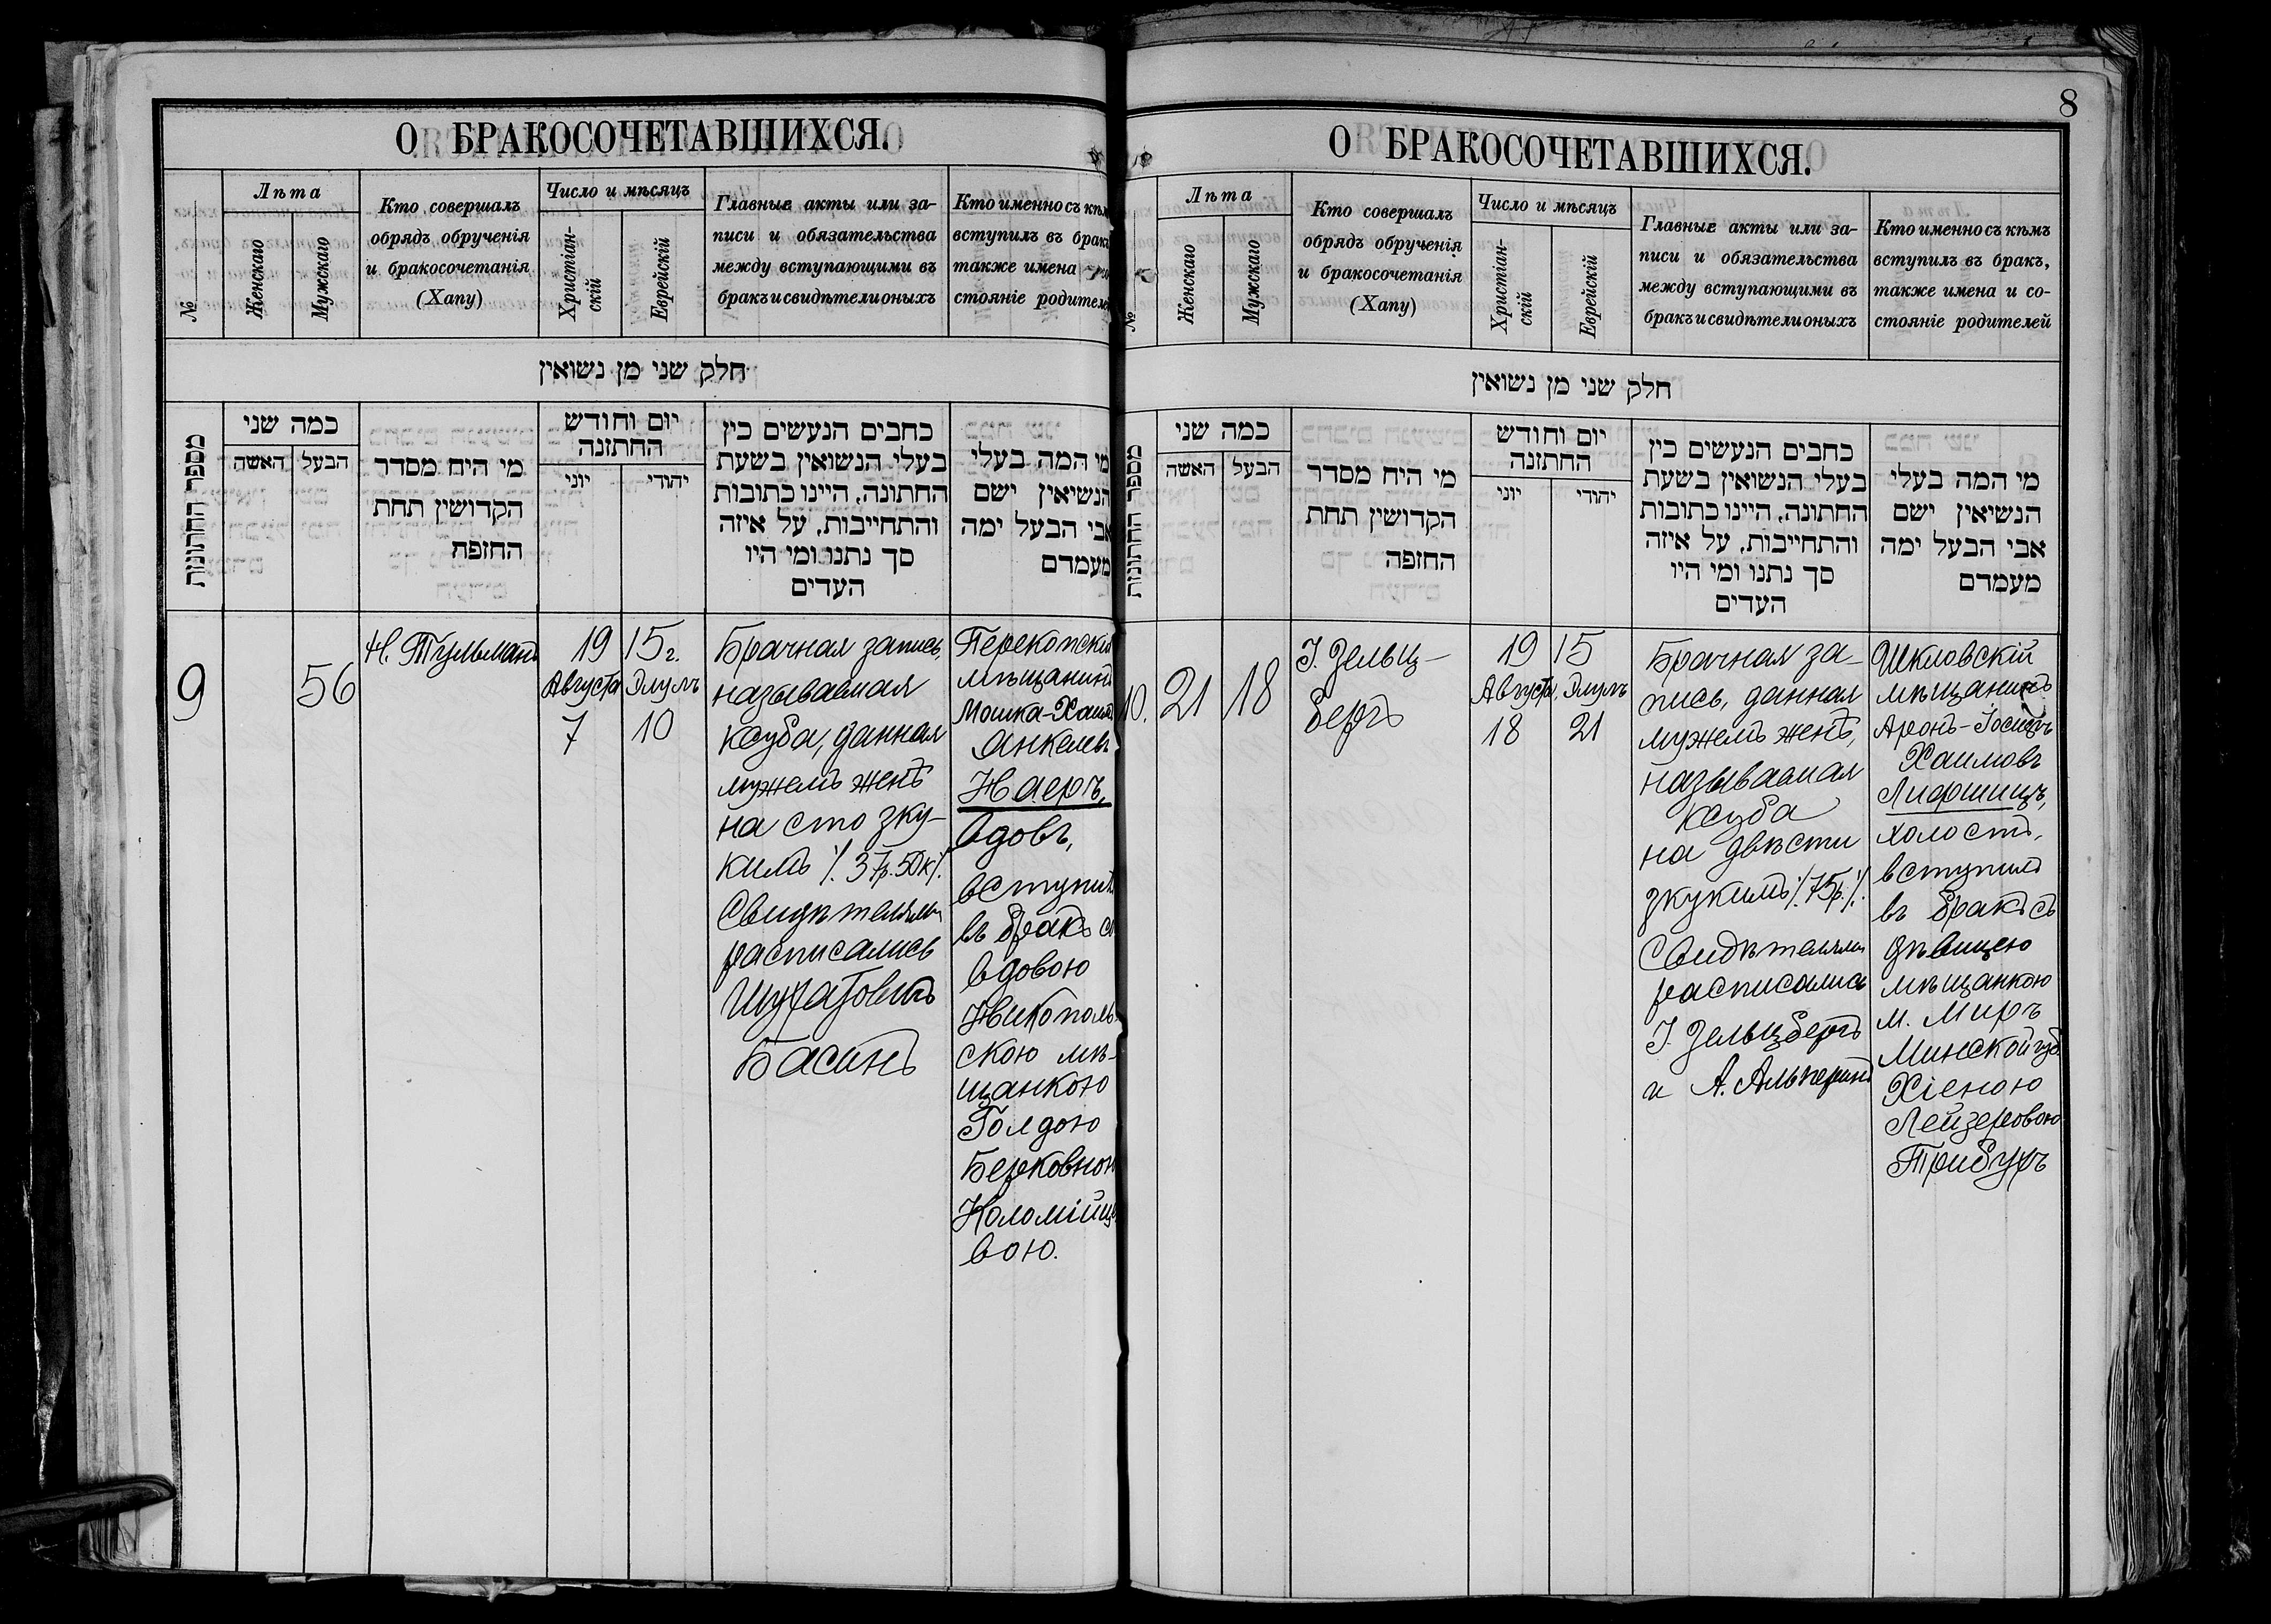 О БРАКОСОЧЕТАВШИХСЯ.
№
Лѣта
Женскаго
Мужскаго
Кто совершалъ
обрядъ обрученія
и бракосочетанія
(Хапу)
Число и мѣсяцъ
Христіан-
скій
Еврейскій
Главные акты или за-
писи и обязательства
между вступающими въ
бракъ и свидѣтели оныхъ
Кто именно съ кѣм
вступилъ въ брак
также имена
стояніе родителе
חלק שני מן נשואין
מספר החתונות
כמה שני
האשה
הבעל
מי היח מסדר
הקדושין תחת
החופה
יום וחודש
החתונה
יוני
יהודי
כתבים הנעשים בין
בעלי הנשואין בשעת
החתונה, היינו כתובות
והתחייבות, על איזה
סך נתנו ומי היו
העדים
מי המה בעלי
הנשיאין ישם
אבי הבעל ימה
מעמדם
9
56
Н. Тульманъ
19
Августа
7
15 г.
Элулъ
10
Брачная запись,
называемая
ксуба, данная
мужемъ женѣ
на сто зку-
кимъ /. 37р. 50к /.
Свидѣтелями
расписались
Басинъ
Перекопскій
мѣщанинъ
Мошка-Хаим
Янкелев
Наеръ,
вдовъ,
вступил
въ бракъ съ
вдовою
Никополь
скою мѣ-
щанкою
Голдою
Берковною
Коломійце
вою.
8
О БРАКОСОЧЕТАВШИХСЯ.
№
Лѣта
Женскаго
Мужскаго
Кто совершалъ
обрядъ обрученія
и бракосочетанія
(Хапу)
Число и мѣсяцъ
Христіан-
скій
Еврейскій
Главные акты или за-
писи и обязательства
между вступающими въ
бракъ и свидѣтели оныхъ
Кто именно съ кѣмъ
вступилъ въ бракъ,
также имена и со-
стояніе родителей
חלק שני מן נשואין
מספר החתונות
כמה שני
האשה
הבעל
מי היח מסדר
הקדושין תחת
החופה
יום וחודש
החתונה
יוני
יהודי
כתבים הנעשים בין
בעלי הנשואין בשעת
החתונה, היינו כתובות
והתחייבות, על איזה
סך נתנו ומי היו
העדים
מי המה בעלי
הנשיאין ישם
אבי הבעל ימה
מעמדם
10.
21
18
І. Зельц-
бергъ
19
Августа
18
15
Элулъ
21
Брачная за-
пись, данная
мужемъ женѣ,
называемая
ксуба
на двѣсти
зкукимъ /. 75р. /.
Свидѣтелями
расписались
І. Зельцбергъ
и А. Альперинъ
Шкловскій
мѣщанинъ
Аронъ-Іосифъ
Хаимовъ
Лифшицъ,
холостъ,
вступилъ
въ бракъ съ
дѣвицею
мѣщанкою
м. Миръ
Минской губ.
Хіеною
Лейзеровою
Трибухъ